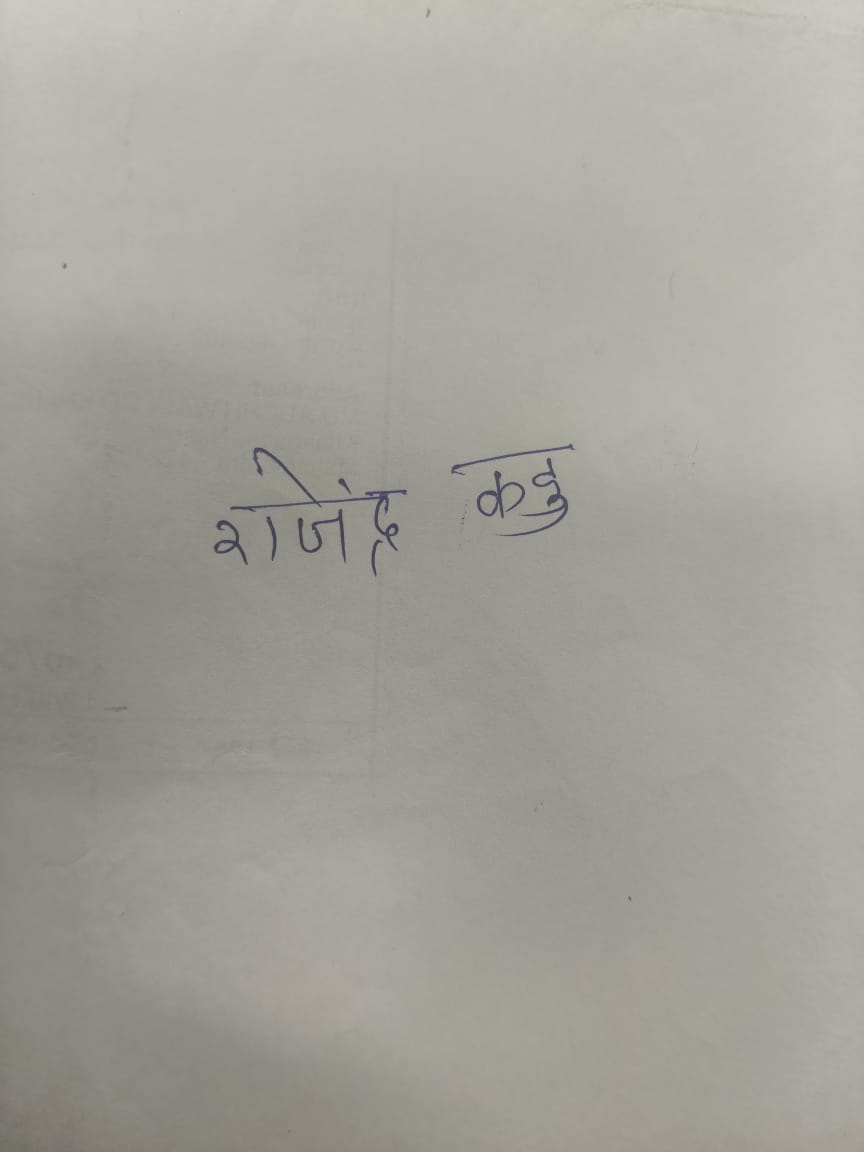 राजेंद्र कडु